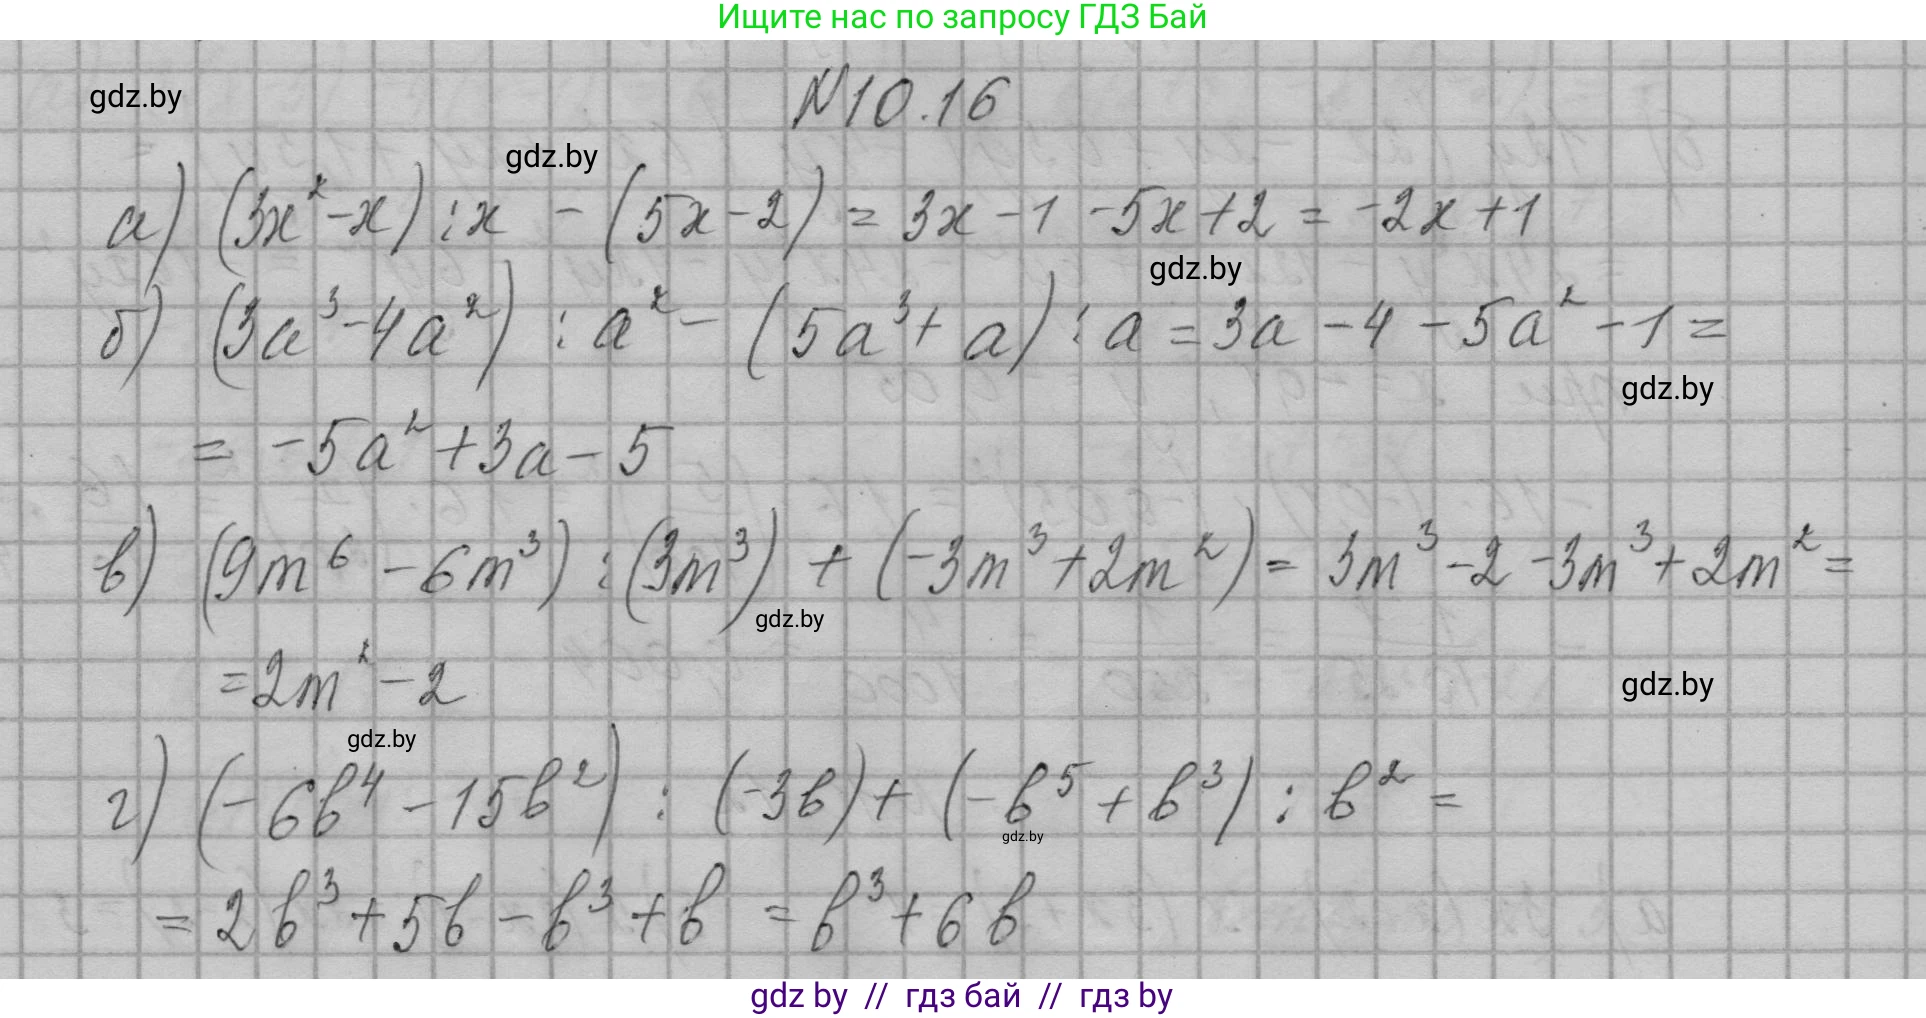 Ищите нас по запросу ГДЗ Бай
gdz.by
№10.16
gdz.by
а) (3x² - x) : x - (5x - 2) = 3x - 1 - 5x + 2 = -2x + 1
gdz.by
б) (3a³ - 4a²) : a² - (5a³ + a) : a = 3a - 4 - 5a² - 1 =
gdz.by
= -5a² + 3a - 5
в) (9m⁶ - 6m³) : (3m³) + (-3m³ + 2m²) = 3m³ - 2 - 3m³ + 2m² =
gdz.by
= 2m² - 2
gdz.by
gdz.by
г) (-6b⁴ - 15b²) : (-3b) + (-b⁵ + b³) : b² =
gdz.by
= 2b³ + 5b - b³ + b = b³ + 6b
gdz by // гдз бай // гдз by